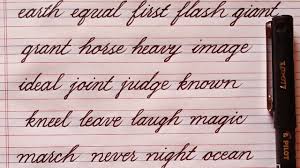 earth equal first flash giant
grant horse heavy image
ideal joint judge known
kneel leave laugh magic
march never night ocean
PILOT